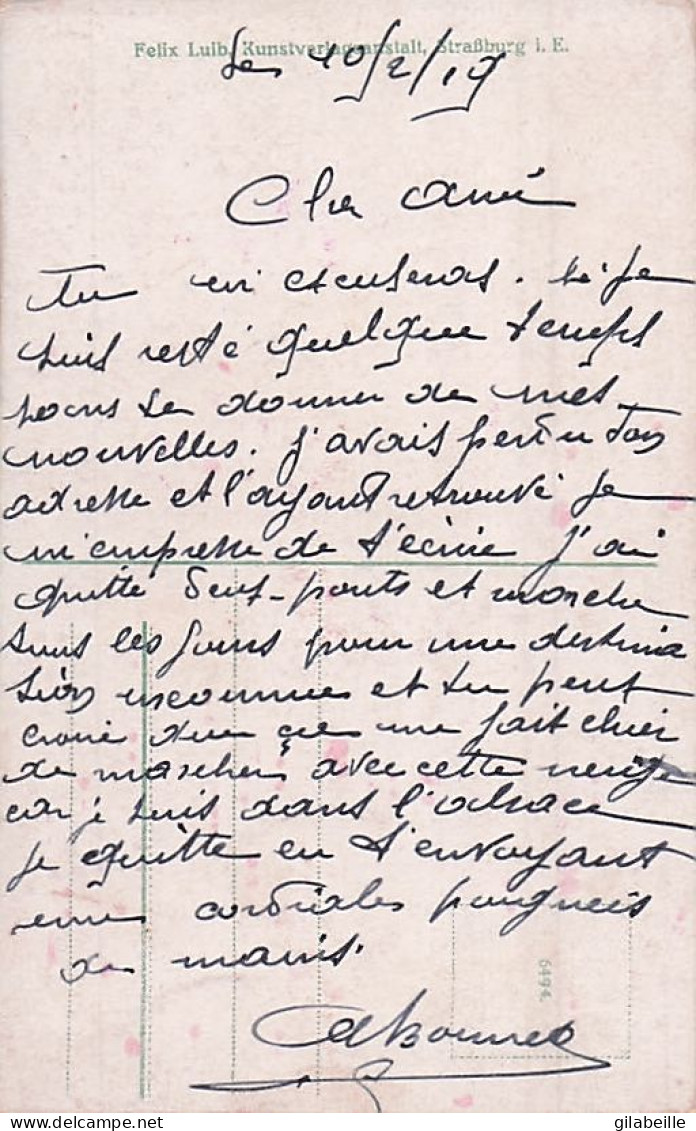 Felix Luib, Kunstverlagsanstalt, Straßburg i. E.
Les 10/2/19
Cher ami
Tu m'excuseras. si je
suis resté quelque temps
sans te donner de mes
nouvelles. J'avais perdu ton
adresse et l'ayant retrouvé je
m'empresse de t'écrire J'ai
quitté Deux-ponts et marche
tous les jours pour une destina
tion inconnue et tu peut
croire que ça me fait chier
de marcher avec cette neige
car je suis dans l'alsace
je quitte en t'envoyant
une cordiales poignées
de mains.
6494.
gilabeille